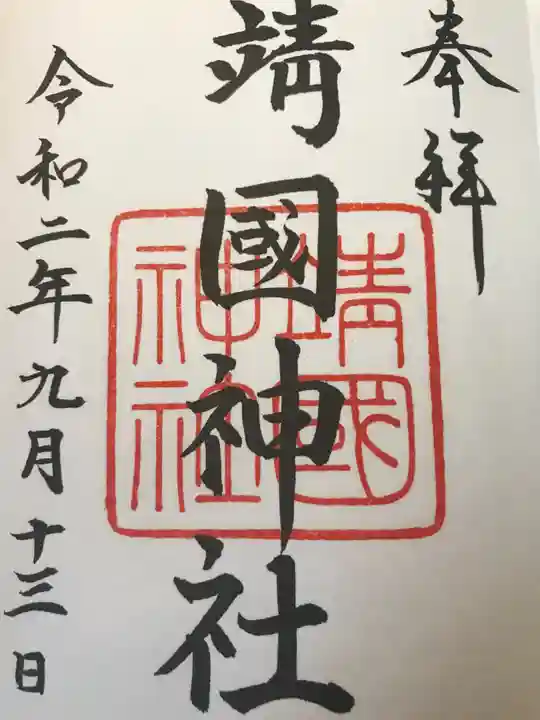 奉拝
靖國神社
靖國神社
令和二年九月十三日